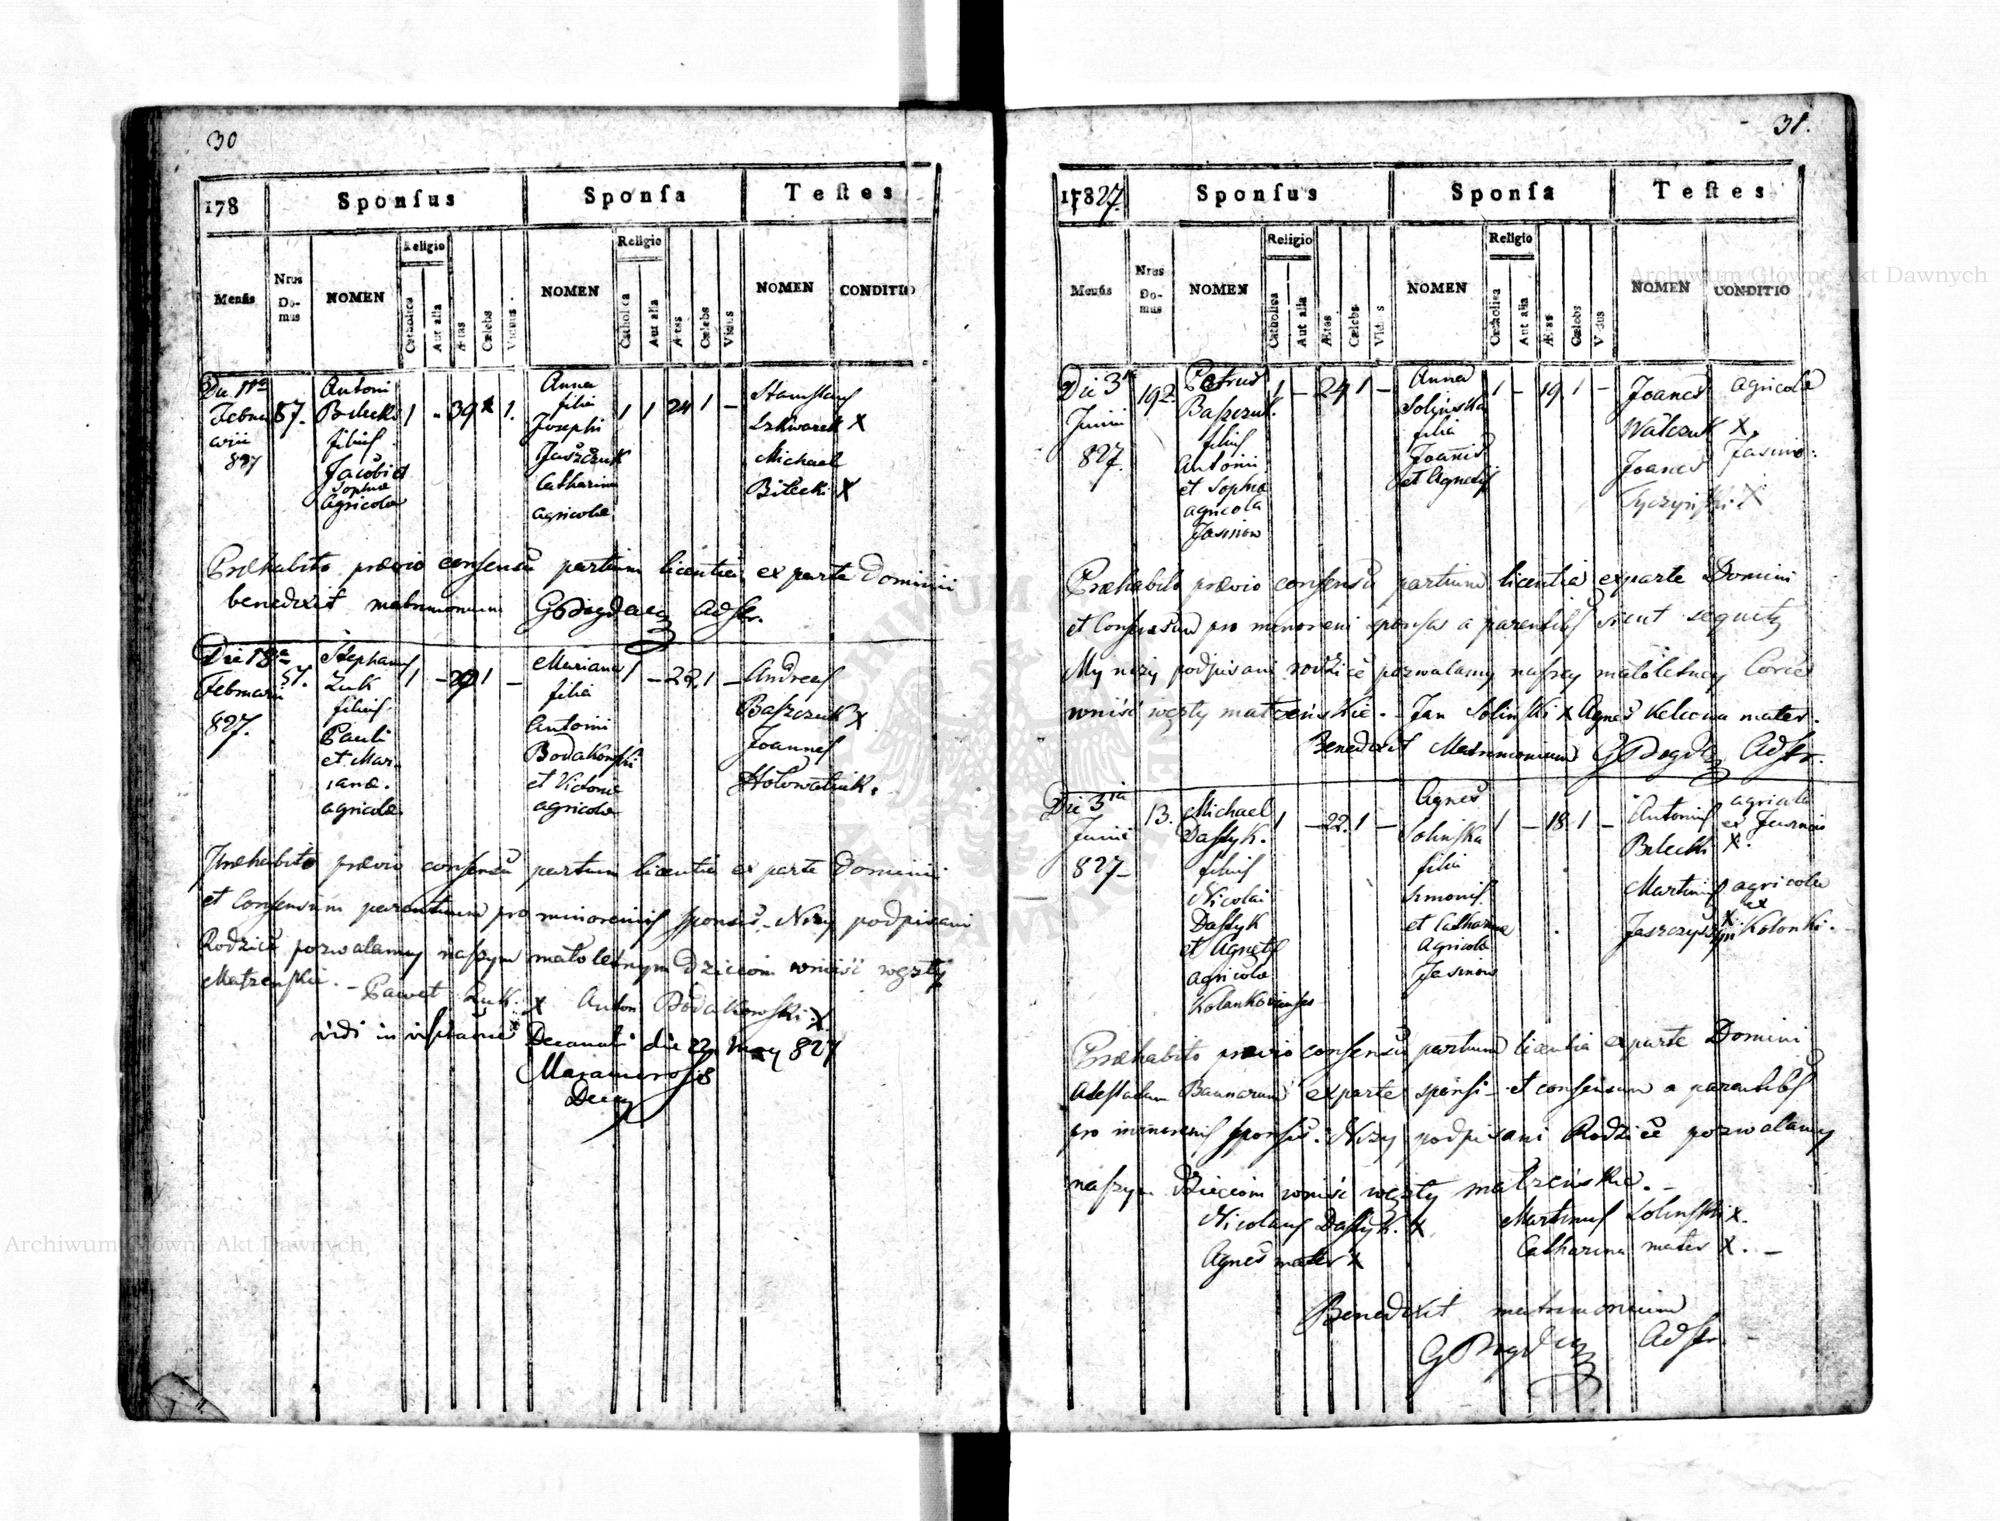 30
178
Sponſus
Sponſa
Teſtes
Menſis
Nrus Domus
NOMEN
Religio
Catholica
Aut alia
Ætas
Cælebs
Viduus
NOMEN
Religio
Catholica
Aut alia
Ætas
Cælebs
Vidua
NOMEN
CONDITIO
Februarii
827
87.
Antoni
Bilecki
filius
Jacobi et
Sophiæ
Agricolæ
1 - 39 1.
Anna
filia
Josephi
Jaszczuk
Catharina
agricolæ
1 1 24 1 -
Michael
Bilecki X
Præhabito prævio consensu partium licentia ex parte Dominii
benedixit matrimonium
Die 18a
Februarii
827.
57.
Stephanus
Zuk
filius
Pauli
et Mar-
ianæ.
agricolæ
1 - 29 1 -
Mariana
filia
Antoni
Bodakowski
et Victoriæ
agricolæ
1 - 22. 1 -
Andreas
Baszczuk X
Joannes
Hołowatiuk.
Præhabito prævio consensu partium licentia ex parte Dominii
et Consensum parentum pro minorenis sponsis. Niży podpisani
Rodzice pozwalamy naszym małoletnym Dzieciom wniść węzły
Małzenskie. - Paweł Zuk. X Anton Bodakowski. X.
vidi in visitatione Decanali die 22 May 827
31.
17827.
Sponſus
Sponſa
Teſtes
Menſis
Nrus Domus
NOMEN
Religio
Catholica
Aut alia
Ætas
Cælebs
Viduus
NOMEN
Religio
Catholica
Aut alia
Ætas
Cælebs
Vidua
NOMEN
CONDITIO
Die 3
Junii
827.
192.
Petrus
Baszczuk.
filius
Antonii
et Sophiæ
agricola
Jasinow
1 - 24 1 -
Anna
Solinska
filia
Joannis
et Agnetis
1 - 19 1 -
Joanes
Walczuk X.
Joanes
agricolæ
Præhabito prævio consensu partium licentia ex parte Domini
et Consensum pro minoreni sponsas a parentibus sicut sequitur
My niży podpisani rodzice pozwalamy naszey małoletney Corce
wniść węzły małżeńskie. - Jan Solinski X Agnes mater.
Benedixit Matrimonium
Die 3ia
Junii
827
13.
Michael
Daszyk.
filius
Nicolai
Daszyk
et Agnetis
agricolæ
1 - 22. 1 -
Agnes
Solinska
filia
Simonis
et Catharinæ
Agricolæ
Jasinow
1 - 18 1 -
Antonius
Bilecki X.
Martinus
agricola
ex
agricola
ex
Kolonki.
Præhabito prævio consensu partium licentia ex parte Domini
Adestatum Bannorum ex parte sponsi et consensum a parentibus
pro minorenis sponsis. Niży podpisani Rodzice pozwalamy
naszym Dzieciom wniść węzły małzeńskie. -
Nicolaus Daszyk. X
Martinus Solinski X.
Agnes mater X
Catharina mater X. -
Benedixit matrimonium
Archiwum Główne Akt Dawnych
Archiwum Główne Akt Dawnych